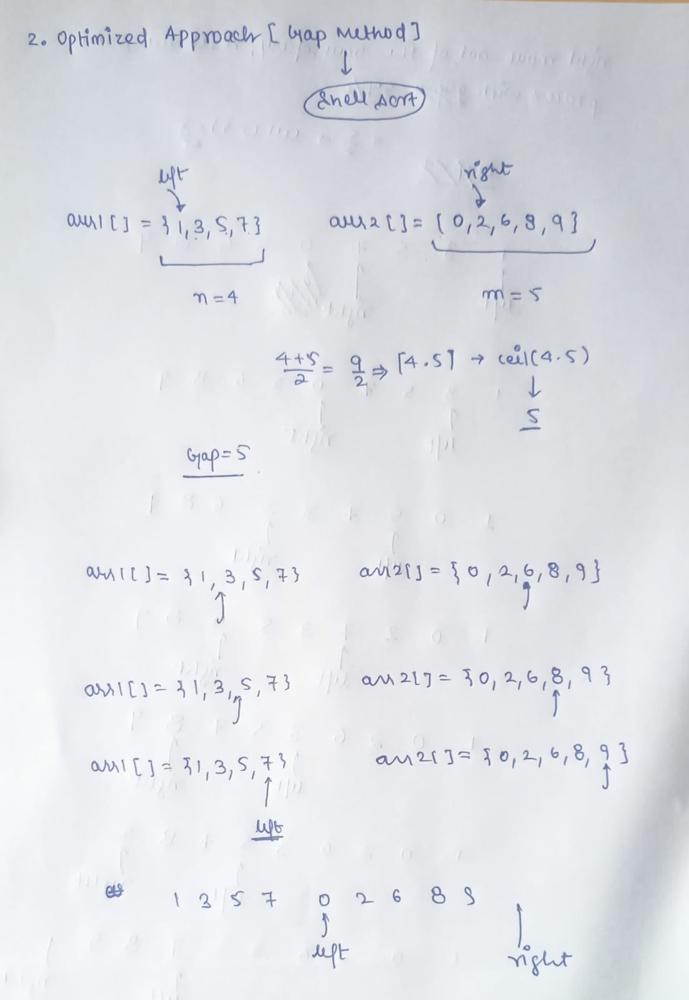 2. Optimized Approach [ Gap Method ]
↓
Shell sort
left right
arr1 [ ] = { 1, 3, 5, 7 } arr2 [ ] = { 0, 2, 6, 8, 9 }
n = 4 m = 5
4+5/2 = 9/2 ⇒ ⌈4.5⌉ → ceil(4.5)
↓
5
Gap = 5
arr1 [ ] = { 1, 3, 5, 7 } arr2 [ ] = { 0, 2, 6, 8, 9 }
arr1 [ ] = { 1, 3, 5, 7 } arr2 [ ] = { 0, 2, 6, 8, 9 }
arr1 [ ] = { 1, 3, 5, 7 } arr2 [ ] = { 0, 2, 6, 8, 9 }
left
1 3 5 7 0 2 6 8 9
left right